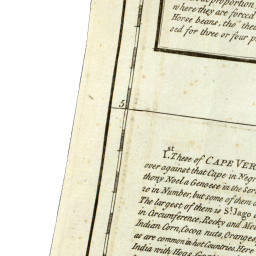 proportion
where they are forced
Horse beans, tho' the
sed for three or four p
5
1.st These of CAPE VER
over against that Cape in Negr
thony Noel a Genoese in the Ser
20 in Number, but some of them a
The largest of them is St. Jago
in Circumference, Rocky and Mo
Indian Corn, Cocoa nuts, Oranges,
as are common in hot Countries. Here
India with Hogs,